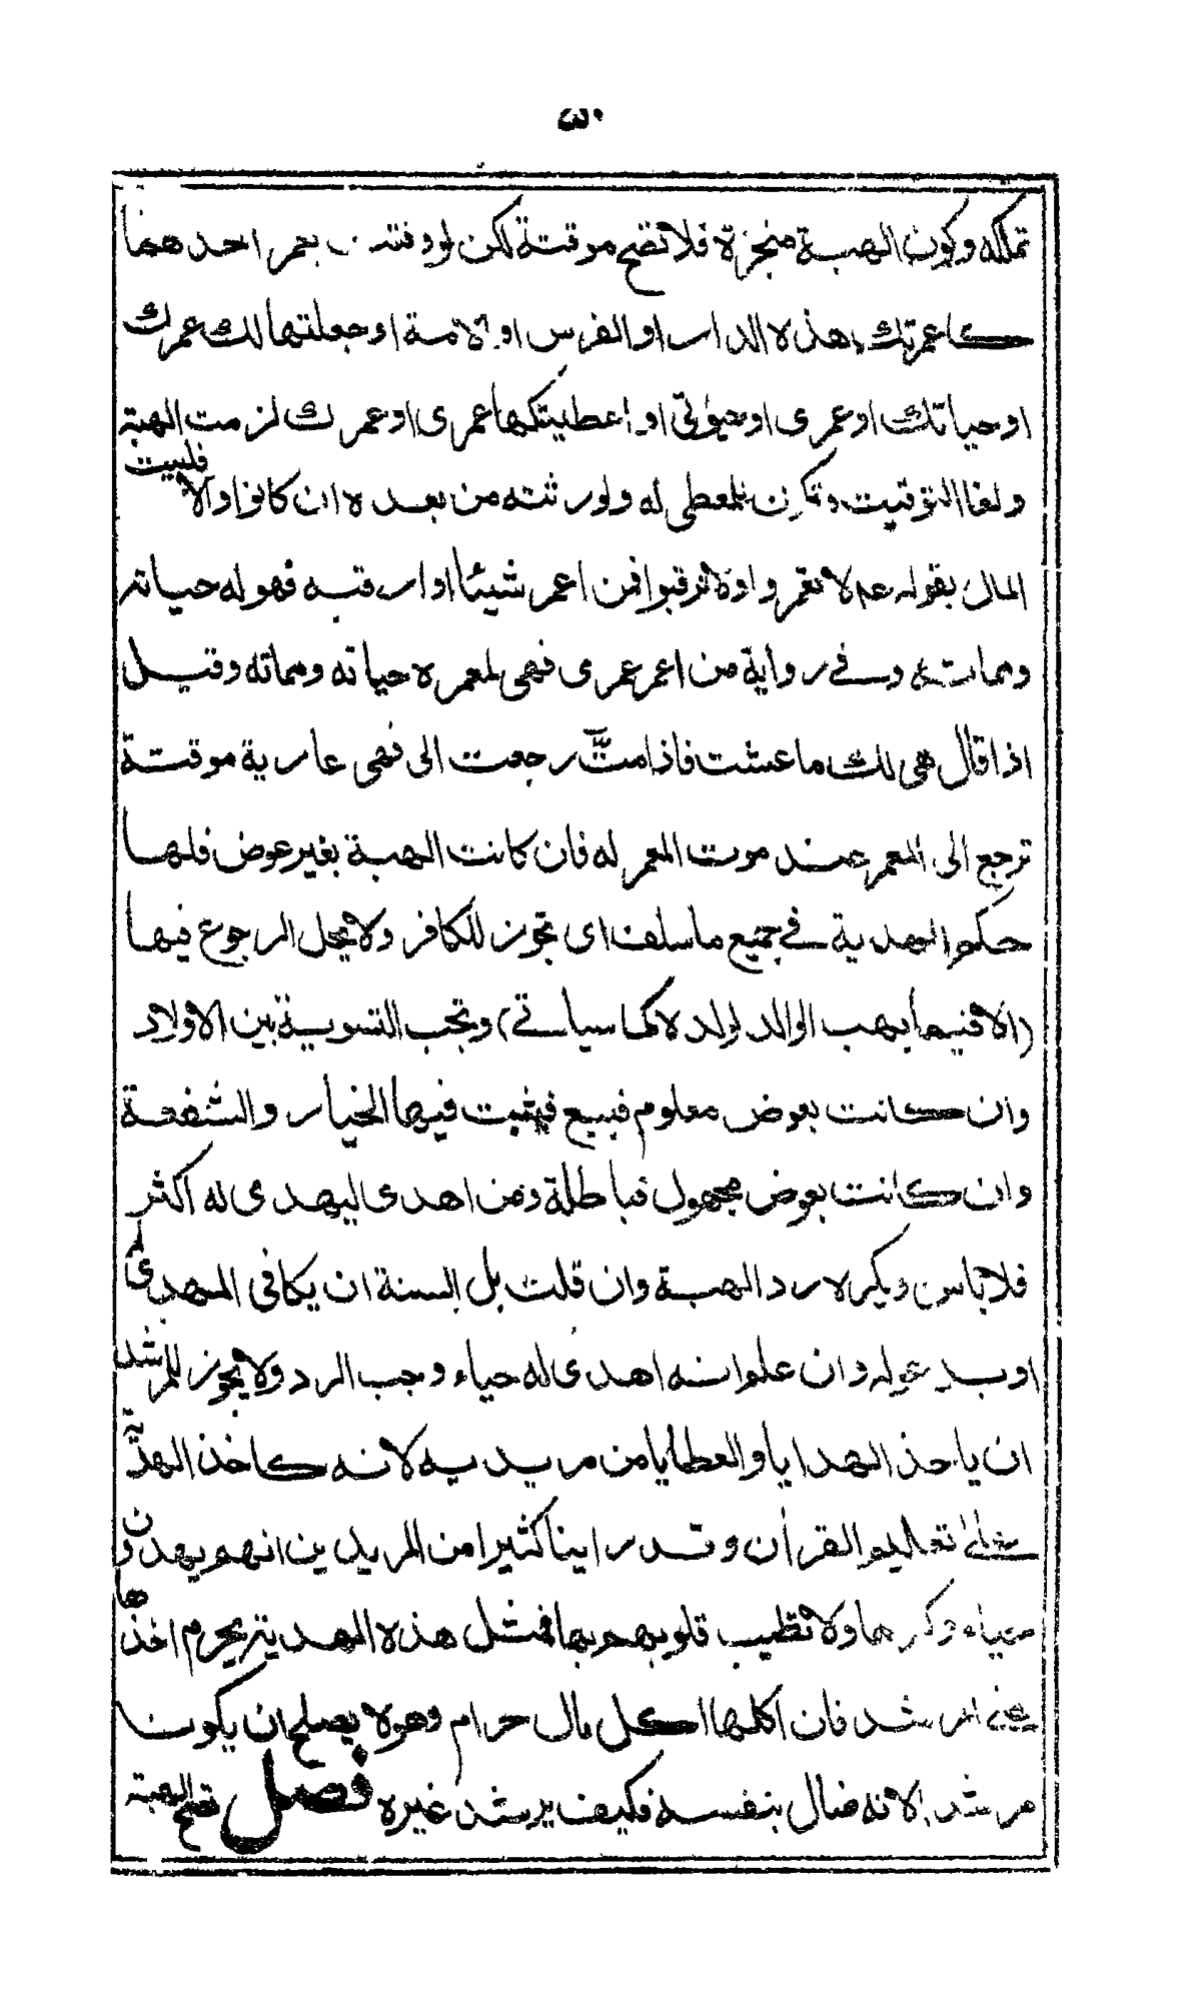 ٣٠
تملكه وكون الهبة منجزة فلا تصح موقتة لكن لو وقتت بعمر احدهما
كاعمرتك هذه الدار او الفرس او الامة او جعلتها لك عمرك
او حياتك او عمرى او حيوتى او اعطيتكها عمرى او عمرك لزمت الهبة
ولغا التوقيت وتكون للمعطى له ولورثته من بعده ان كانوا والا فلبيت
المال بقوله عم لا تعمروا ولا ترقبوا فمن اعمر شيئا او ارقبه فهو له حياته
ومماته وفى رواية من اعمر عمرى فهى لمعمره حياته ومماته وقيل
اذا قال هى لك ما عشت فاذا مت رجعت الى فهى عارية موقتة
ترجع الى المعمر عند موت المعمر له فان كانت الهبة بغير عوض فلها
حكم الهدية فى جميع ما سلف اى تجوز للكافر ولا يحل الرجوع فيها
(الا فيما يهب الوالد لولده كما سياتى) وتجب التسوية بين الاولاد
وان كانت بعوض معلوم فبيع فيثبت فيها الخيار والشفعة
وان كانت بعوض مجهول فباطلة ومن اهدى ليهدى له اكثر
فلا باس ويكره رد الهبة وان قلت بل السنة ان يكافى المهدى
او يدعو له وان علم انه اهدى له حياء وجب الرد ولا يجوز للمرشد
ان ياخذ الهدايا والعطايا من مريديه لانه كاخذ الهدية
على تعليم القرأن وقد راينا كثيرا من المريدين انهم يهدون
حياء وكرها ولا تطيب قلوبهم بها فمثل هذه الهدية يحرم اخذها
على المرشد فان اكلها اكل مال حرام وهو لا يصلح ان يكون
مرشدا لانه ضال بنفسه فكيف يرشد غيره فصل تصح الهبة